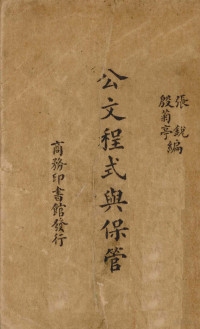 張銳
殷菊亭編
公文程式與保管
商務印書館發行